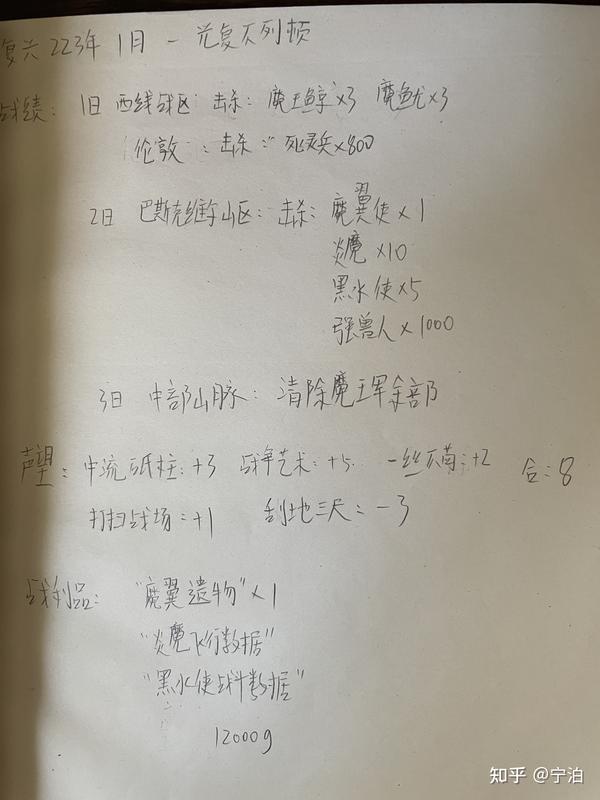 复兴223年1月 - 光复不列颠
战绩: 1日 西线战区: 击杀: 魔王鲸×3 魔鱿×3
伦敦: 击杀: 死灵兵×800
2日 巴斯克维尔山区: 击杀: 魔翼使×1
炎魔×10
黑水使×5
强兽人×1000
3日 中部山脉: 清除魔王军余部
声望: 中流砥柱: +3 战争艺术: +5 一丝不苟: +2 合: 8
打扫战场: +1 刮地三尺: -3
战利品: "魔翼遗物"×1
"炎魔飞行数据"
"黑水使战斗数据"
12000g
知乎 @宁泊